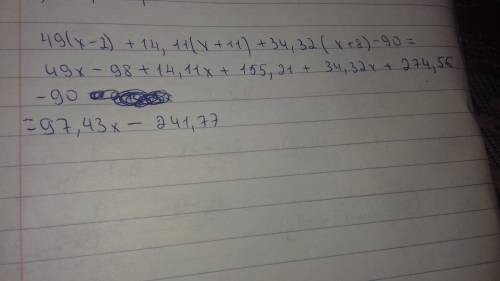 49(x-2) + 14,11(x+11) + 34,32(x+8)-90 =
49x - 98 + 14,11x + 155,21 + 34,32x + 274,56
- 90
= 97,43x - 241,77